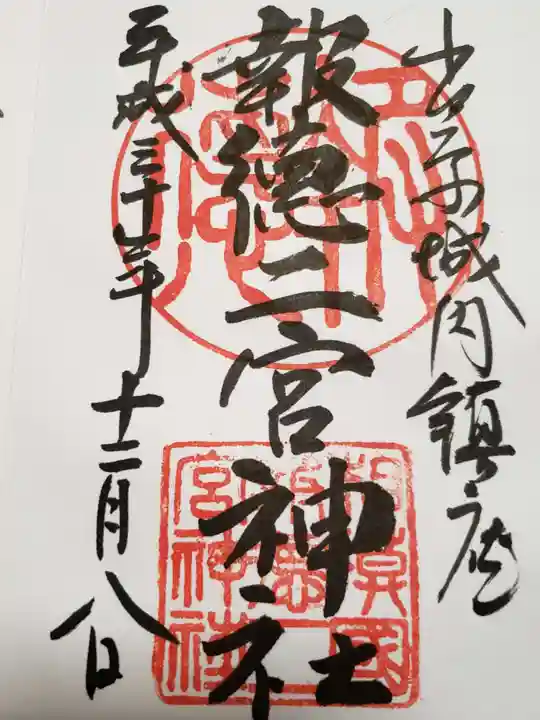 小田原城内鎮座
報徳二宮神社
平成三十年十二月八日
相模國
報徳二
宮神社